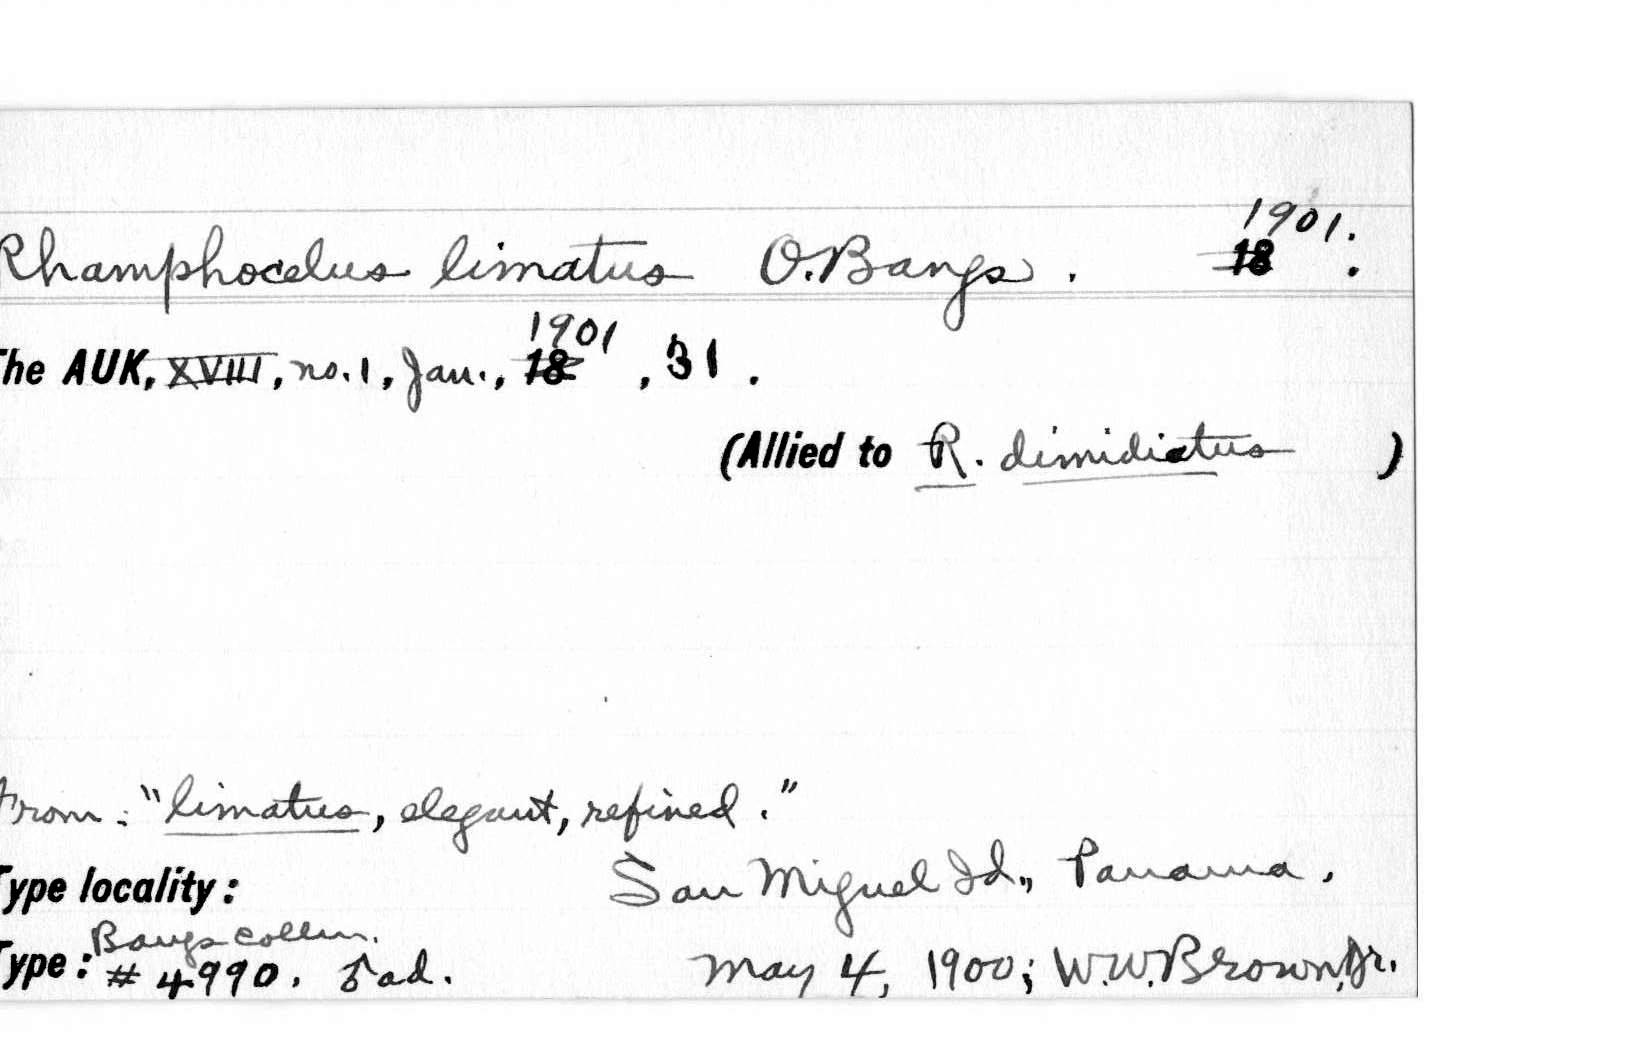 1901.
Rhamphocelus limatus O.Bangs. 18 .
1901
The AUK, XVIII, no. 1, Jan., 18 , 31 .
(Allied to R. dimidiatus )
From: "limatus, elegant, refined."
Type locality: San Miguel Id., Panama.
Bangs Colln.
Type: # 4990. ad. May 4, 1900; W.W.Brown, Jr.